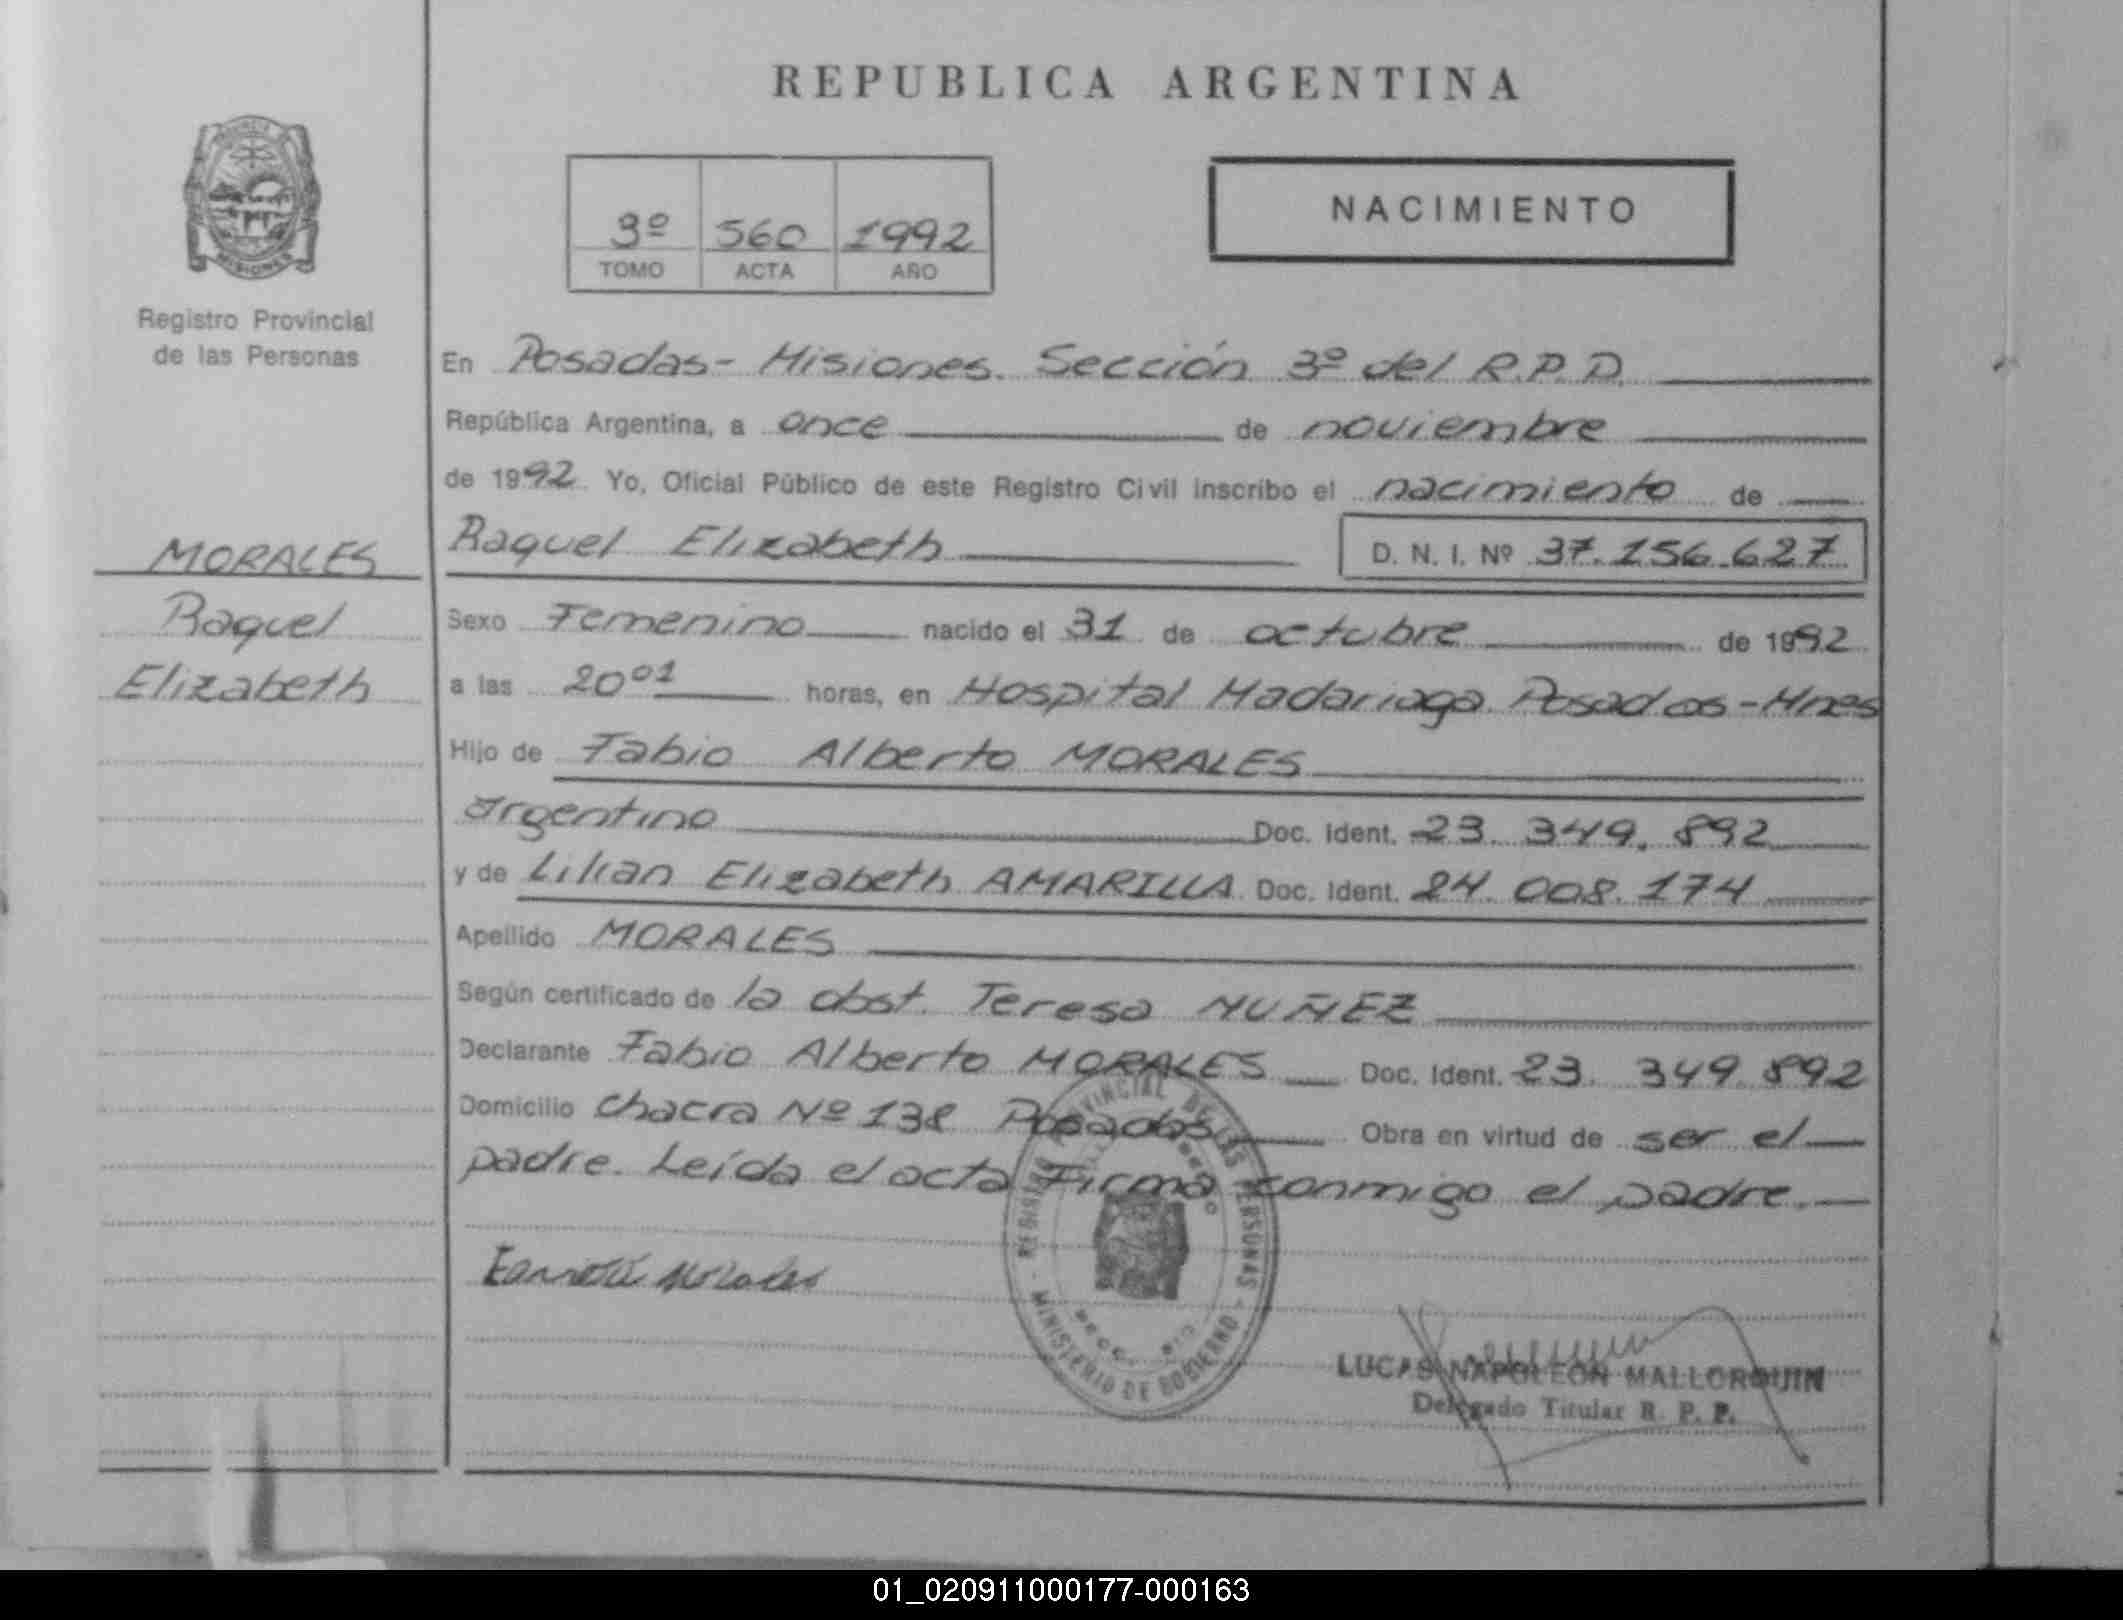 REPUBLICA ARGENTINA
NACIMIENTO
3º 560 1992
TOMO ACTA AÑO
MISIONES
Registro Provincial
de las Personas
MORALES
Raquel
Elizabeth
En Posadas- Misiones. Sección 3º del R.P.D.
República Argentina, a once de noviembre
de 1992. Yo, Oficial Público de este Registro Civil inscribo el nacimiento de
Raquel Elizabeth D. N. I. Nº 37.156.627
Sexo Femenino nacido el 31 de octubre de 1992
a las 20⁰¹ horas, en Hospital Madariaga Posadas-Mnes
Hijo de Fabio Alberto MORALES
argentino Doc. Ident. 23. 349. 892
y de Lilian Elizabeth AMARILLA Doc. Ident. 24. 008. 174
Apellido MORALES
Según certificado de la obst. Teresa NUÑEZ
Declarante Fabio Alberto MORALES Doc. Ident. 23. 349. 892
Domicilio Chacra Nº 138 Posadas Obra en virtud de ser el
padre. Leída el acta Firma conmigo el padre.
REGISTRO PROVINCIAL DE LAS PERSONAS
MINISTERIO DE GOBIERNO
Morales
LUCAS NAPOLEON MALLORQUIN
Delegado Titular R. P. P.
01_020911000177-000163